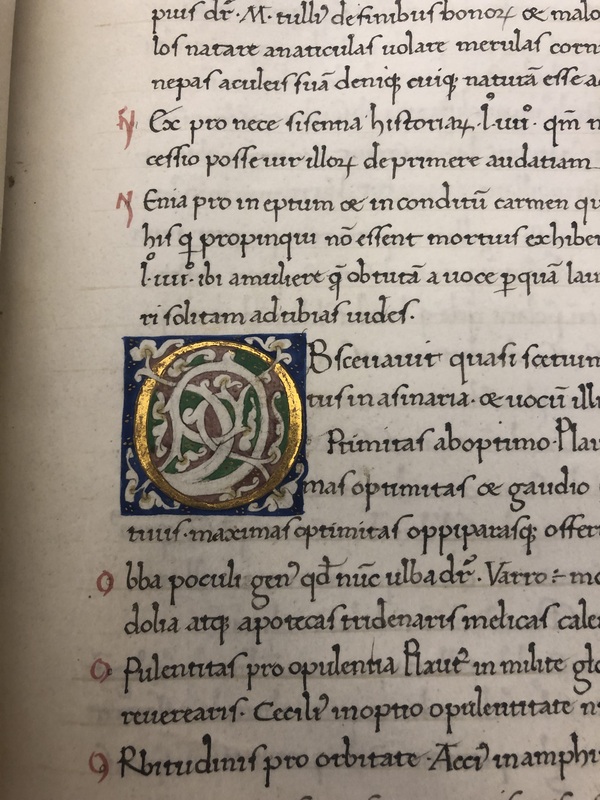 pius dr̄. M. tulli᷒ de finibus bonoꝝ & malo
los natare anaticulas uolare merulas corn
nepas aculeis suā deniq; cuiq; naturā esse a
N Ex pro nece sisenna historiaꝝ. l. iiii. qm̄ n
cessio posse uir illoꝝ deprimere audatiam
N Enia pro ineptum & inconditū carmen qu
his q̄ propinqui nō essent mortuis exhiber
l. iiii. ibi a muliere q̄ obtutā a uoce ꝑquā lau
ri solitam ad tibias uides.
O Bsceuauit quasi scetium
tus in asinaria. & uocū illi
Ptimitas ab optimo. Plau
mas optimitas & gaudio
tiuis. maximas optimitas oppiparasq; offer
O bba poculi gen᷒ qd̄ nūc ulba dr̄. Varro
dolia atq; apotecas tridenaris melicas cale
O Pulentitas pro opulentia Plaut᷒ in milite glo
reuerearis. Cecili᷒ in optio opulentitate n
O Rbitudinis pro orbitate. Acci᷒ in amphi